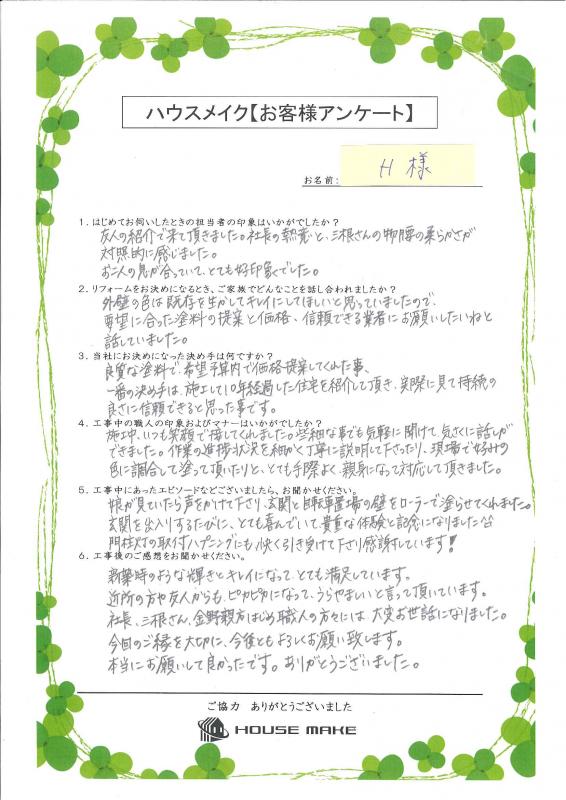 ハウスメイク【お客様アンケート】
お名前: H 様
1. はじめてお伺いしたときの担当者の印象はいかがでしたか?
友人の紹介で来て頂きました。社長の熱意と、三根さんの物腰の柔らかさが
対照的に感じました。
お二人の息が合っていて、とても好印象でした。
2. リフォームをお決めになるとき、ご家族でどんなことを話し合われましたか?
外壁の色は既存を生かしてキレイにしてほしいと思っていましたので、
要望に合った塗料の提案と価格、信頼できる業者にお願いしたいねと
話していました。
3. 当社にお決めになった決め手は何ですか?
良質な塗料で、希望予算内で価格提案してくれた事、
一番の決め手は、施工して10年経過した住宅を紹介して頂き、実際に見て持続の
良さに信頼できると思った事です。
4. 工事中の職人の印象およびマナーはいかがでしたか?
施工中、いつも笑顔で接してくれました。些細な事でも気軽に聞けて、気さくに話しが
できました。作業の進捗状況を細かく丁寧に説明して下さったり、現場で好みの
色に調合して塗って頂いたりと、とても手際よく、親身になって対応して頂きました。
5. 工事中にあったエピソードなどございましたら、お聞かせください。
娘が見ていたら声をかけて下さり、玄関と自転車置場の壁をローラーで塗らせてくれました。
玄関を出入りするたびに、とても喜んでいて、貴重な体験と記念になりました
門柱灯の取付ハプニングにも、快く引き受けて下さり感謝しています!
6. 工事後のご感想をお聞かせください。
新築時のような輝きとキレイになって、とても満足しています。
近所の方や友人からも、ピカピカになって、うらやましいと言って頂いています。
社長、三根さん、金野親方はじめ職人の方々には、大変お世話になりました。
今回のご縁を大切に、今後ともよろしくお願い致します。
本当にお願いして良かったです。ありがとうございました。
ご協力 ありがとうございました
HOUSE MAKE